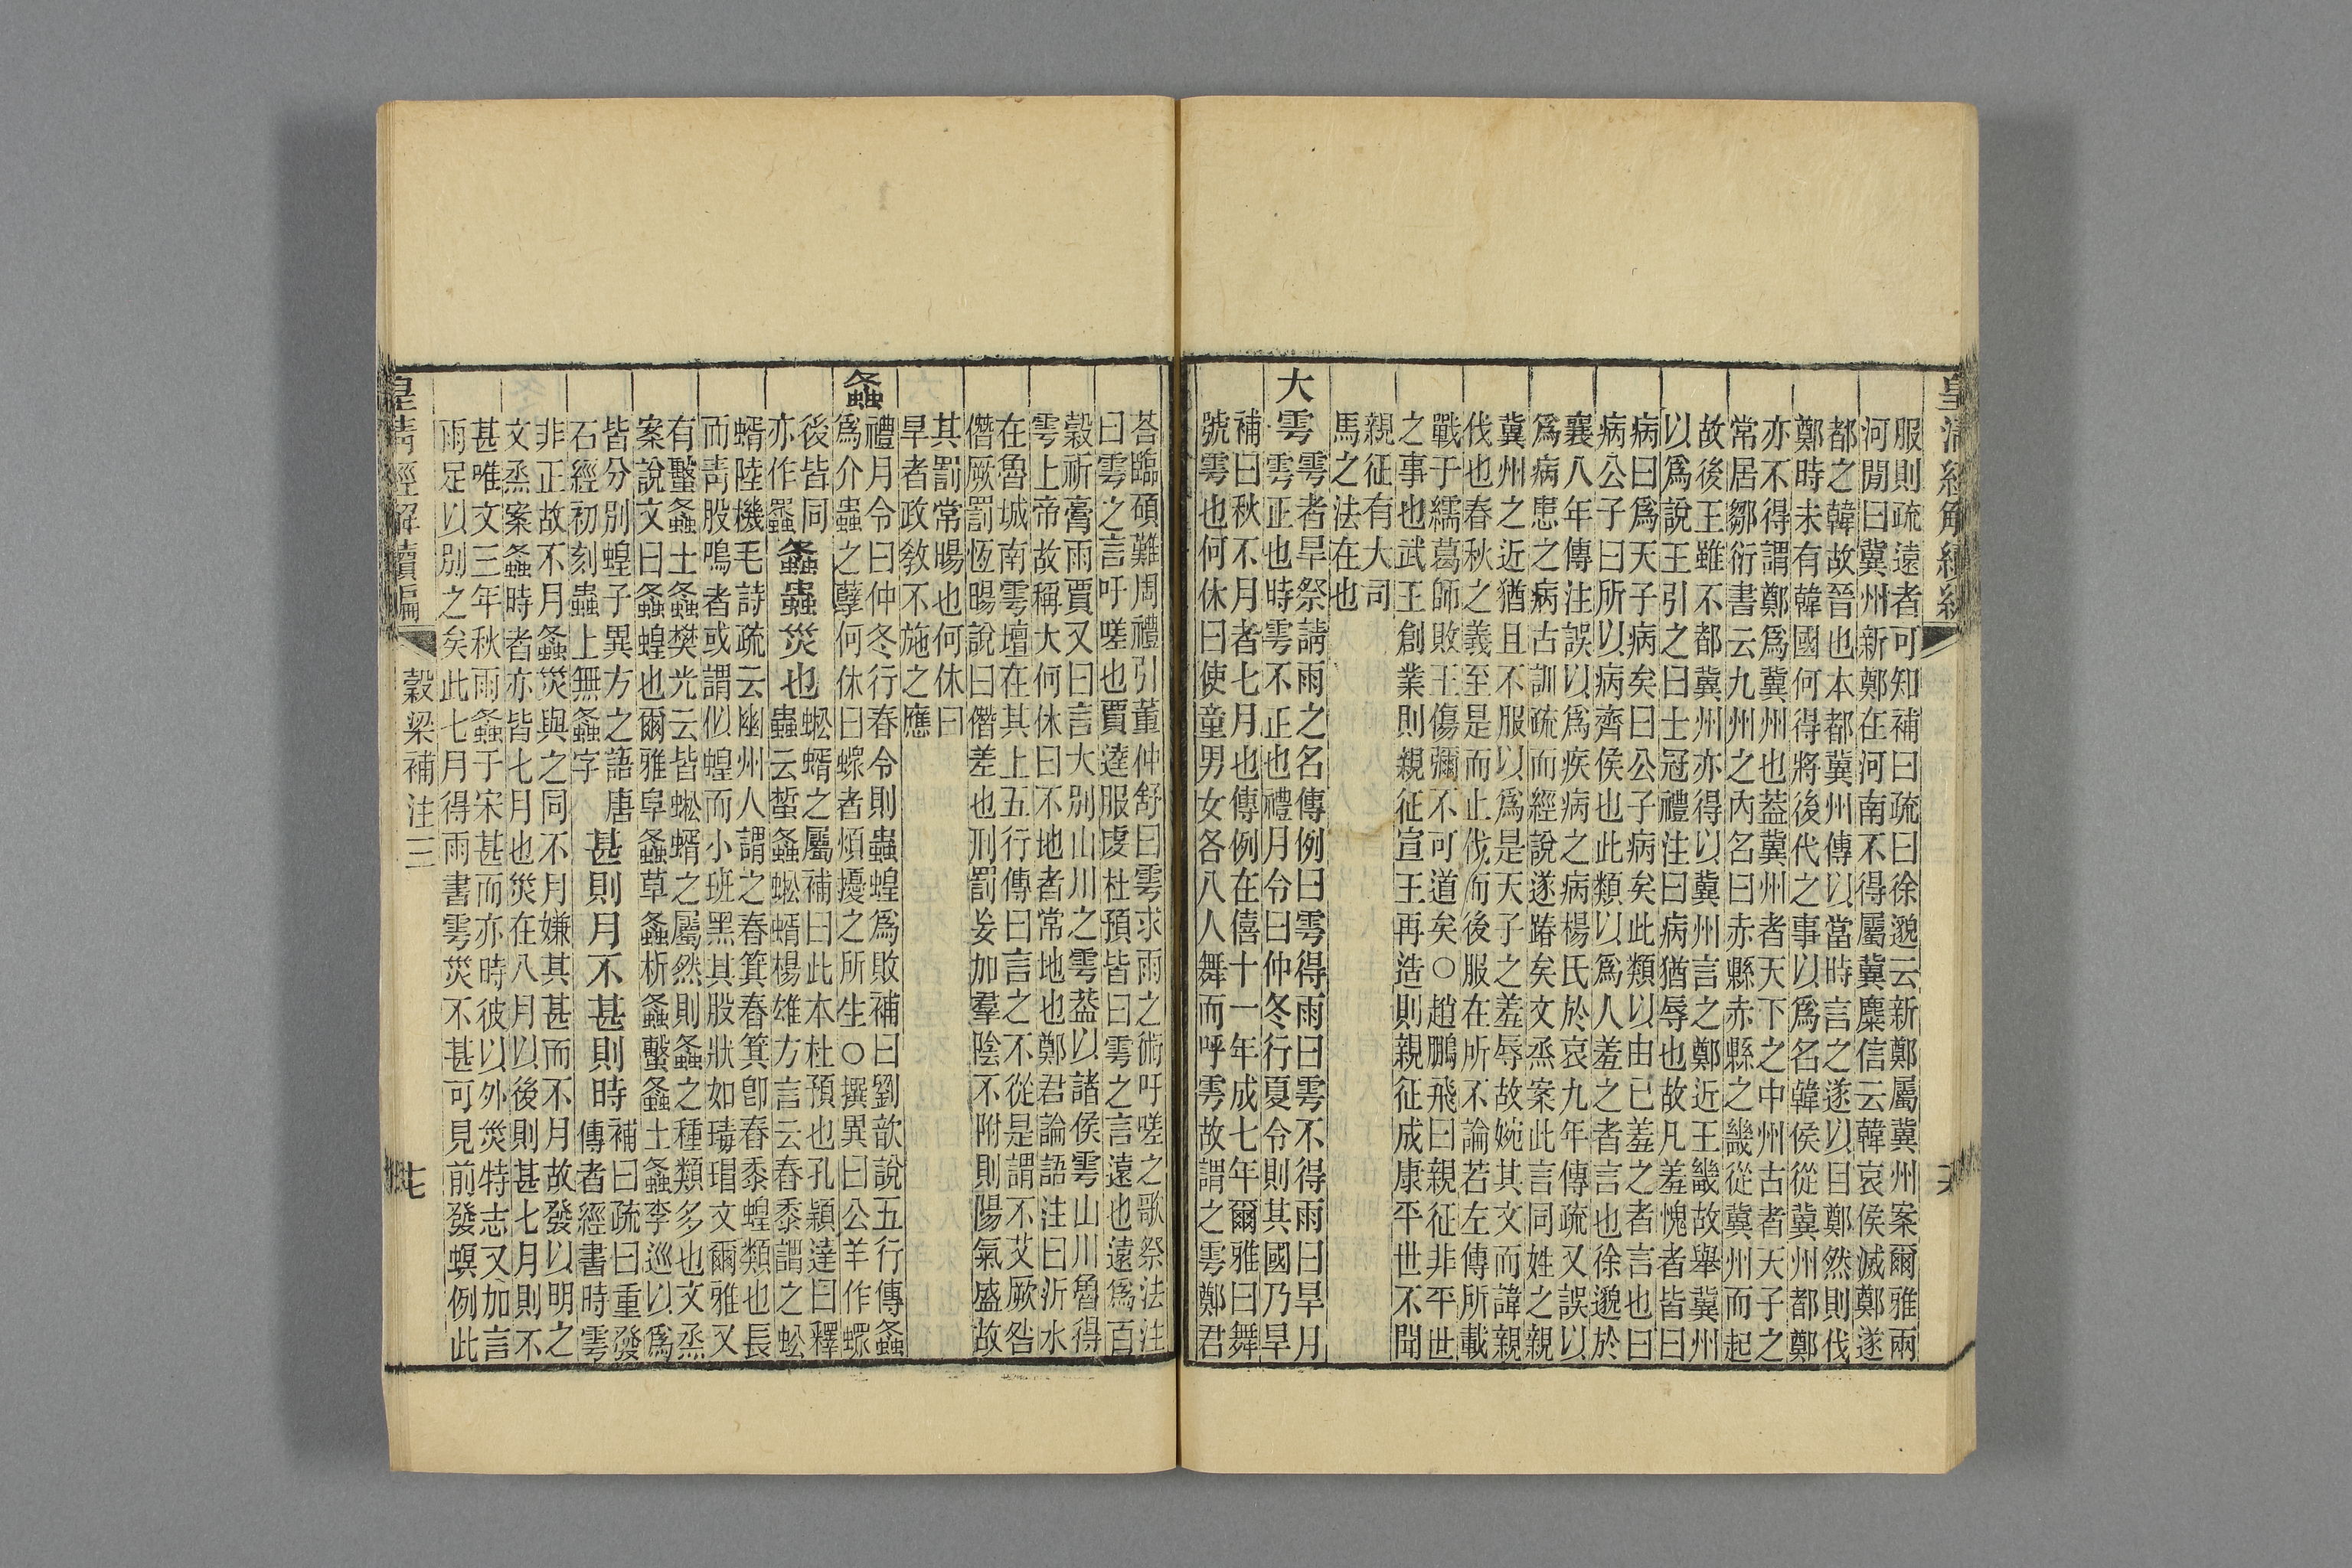 皇清經解續編
服則疏遠者可知補曰疏曰徐邈云新鄭屬冀州案爾雅兩
河閒曰冀州新鄭在河南不得屬冀麋信云韓哀侯滅鄭遂
都之韓故晉也本都冀州傳以當時言之遂以曰鄭然則伐
鄭時未有韓國何得將後代之事以爲名韓侯從冀州都鄭
亦不得謂鄭爲冀州也蓋冀州者天下之中州古者天子之
常居鄒衍書云九州之內名曰赤縣赤縣之畿從冀州而起
故後王雖不都冀州亦得以冀州言之鄭近王畿故舉冀州
以爲說王引之曰士冠禮注曰病猶辱也故凡羞愧者皆曰
病曰爲天子病矣曰公子病矣此類以由已羞之者言也曰
病公子曰所以病齊侯也此類以爲人羞之者言也徐邈於
襄八年傳注誤以爲疾病之病楊氏於哀九年傳疏又誤以
爲病患之病古訓疏而經說遂踳矣文烝案此言同姓之親
冀州之近猶且不服以爲是天子之羞辱故婉其文而諱親
伐也春秋之義至是而止伐而後服在所不論若左傳所載
戰于繻葛師敗王傷彌不可道矣○趙鵬飛曰親征非平世
之事也武王創業則親征宣王再造則親征成康平世不聞
親征有大司
馬之法在也
大雩
雩者旱祭請雨之名傳例曰雩得雨曰雩不得雨曰旱月
雩正也時雩不正也禮月令曰仲冬行夏令則其國乃旱
補曰秋不月者七月也傳例在僖十一年成七年爾雅曰舞
號雩也何休曰使童男女各八人舞而呼雩故謂之雩鄭君
荅臨碩難周禮引董仲舒曰雩求雨之術吁嗟之歌祭法注
曰雩之言吁嗟也賈逵服虔杜預皆曰雩之言遠也遠爲百
穀祈膏雨賈又曰言大別山川之雩蓋以諸侯雩山川魯得
雩上帝故稱大何休曰不地者常地也鄭君論語注曰沂水
在魯城南雩壇在其上五行傳曰言之不從是謂不艾厥咎
僭厥罰恆暘說曰僭差也刑罰妄加羣陰不附則陽氣盛故
其罰常暘也何休曰
旱者政教不施之應
螽
禮月令曰仲冬行春令則蟲蝗爲敗補曰劉歆說五行傳螽
爲介蟲之孽何休曰螺者煩擾之所生○撰異曰公羊作螺
後皆同
亦作蠶
螽蟲災也
蜙蝑之屬補曰此本杜預也孔穎達曰釋
蟲云蜤螽蜙蝑楊雄方言云舂黍謂之蜙
蝑陸機毛詩疏云幽州人謂之舂箕舂箕卽舂黍蝗類也長
而靑股鳴者或謂似蝗而小班黑其股狀如瑇瑁文爾雅又
有蟿螽土螽樊光云皆蜙蝑之屬然則螽之種類多也文烝
案說文曰螽蝗也爾雅阜螽草螽蜤螽蟿螽土螽李巡以爲
皆分別蝗子異方之語唐
石經初刻蟲上無螽字
甚則月不甚則時
補曰疏曰重發
傳者經書時雩
非正故不月螽災與之同不月嫌其甚而不月故發以明之
文烝案螽時者亦皆七月也災在八月以後則甚七月則不
甚唯文三年秋雨螽于宋甚而亦時彼以外災特志又加言
雨足以別之矣此七月得雨書雩災不甚可見前發螟例此
皇淸經解續編
穀梁補注三
七